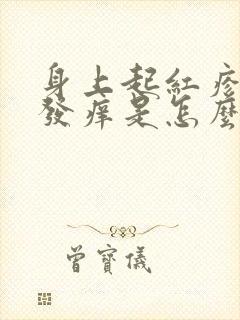 身上起紅疹
發痒是怎麼
曾寶儀